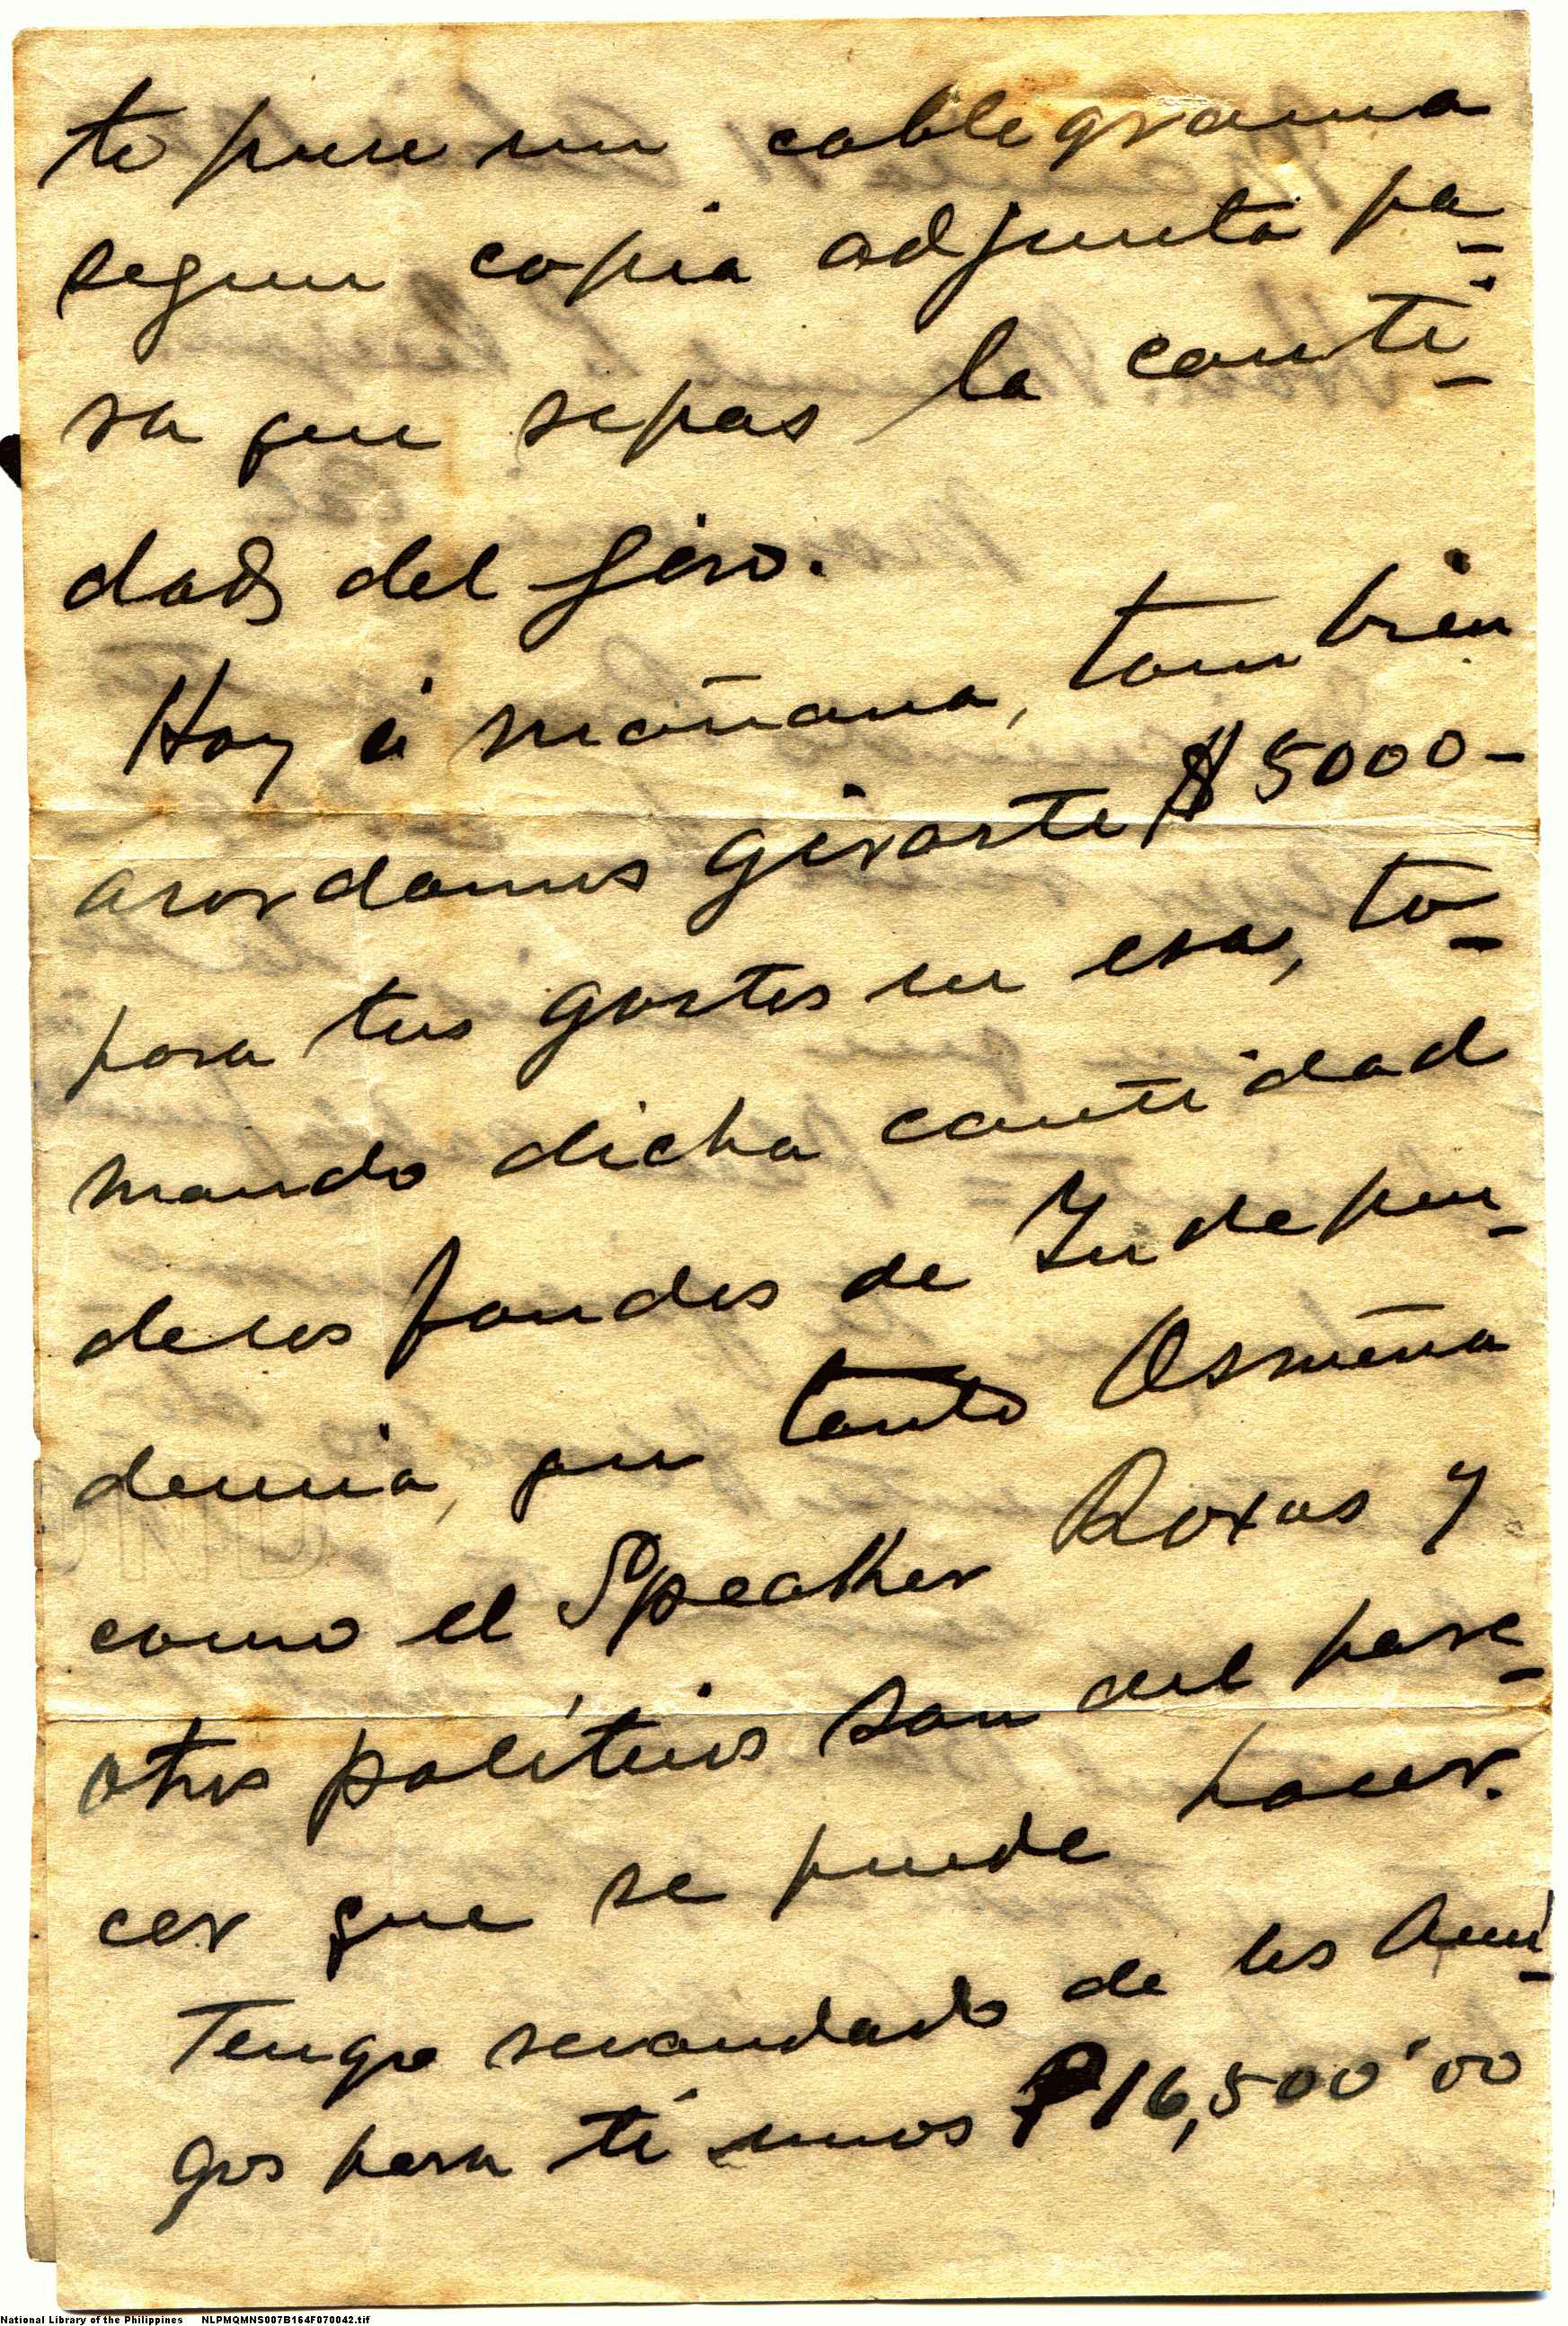 te puse un cablegrama
segun copia adjunta pa-
ra que sepas la canti-
dad del giro.
Hoy ó mañana, tambien
acordamos girarte $5000-
para tus gastos en esa, to-
mando dicha cantidad
de los fondos de Indepen-
dencia, pues tanto Osmeña
como el Speaker Roxas y
otros políticos son del pare-
cer que se puede hacer.
Tengo recaudado de los Ami-
gos para tí unos ₱16,500'00
National Library of the Philippines NLPMQMNS007B164F070042.tif